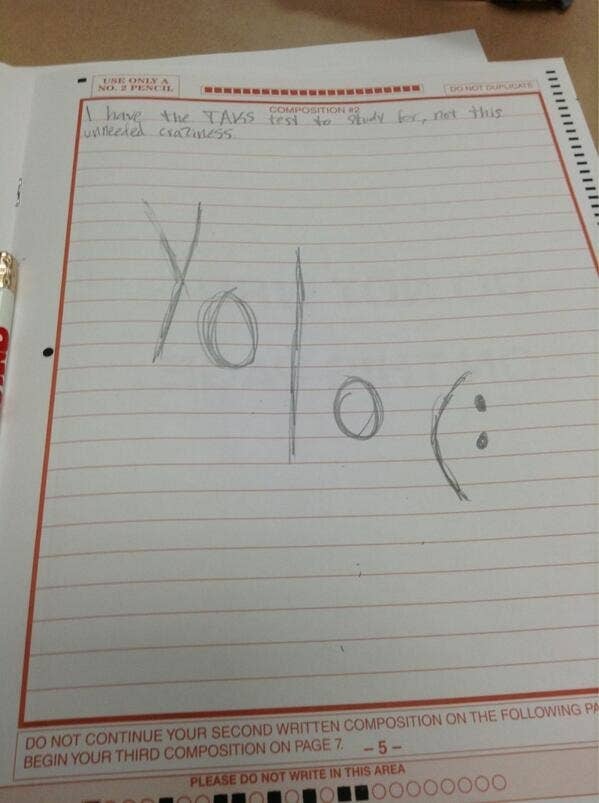 USE ONLY A
NO. 2 PENCIL
DO NOT DUPLICATE
COMPOSITION #2
I have the TAKS test to study for, not this
unneeded craziness.
Yolo (:
DO NOT CONTINUE YOUR SECOND WRITTEN COMPOSITION ON THE FOLLOWING PA
BEGIN YOUR THIRD COMPOSITION ON PAGE 7.
-5-
PLEASE DO NOT WRITE IN THIS AREA